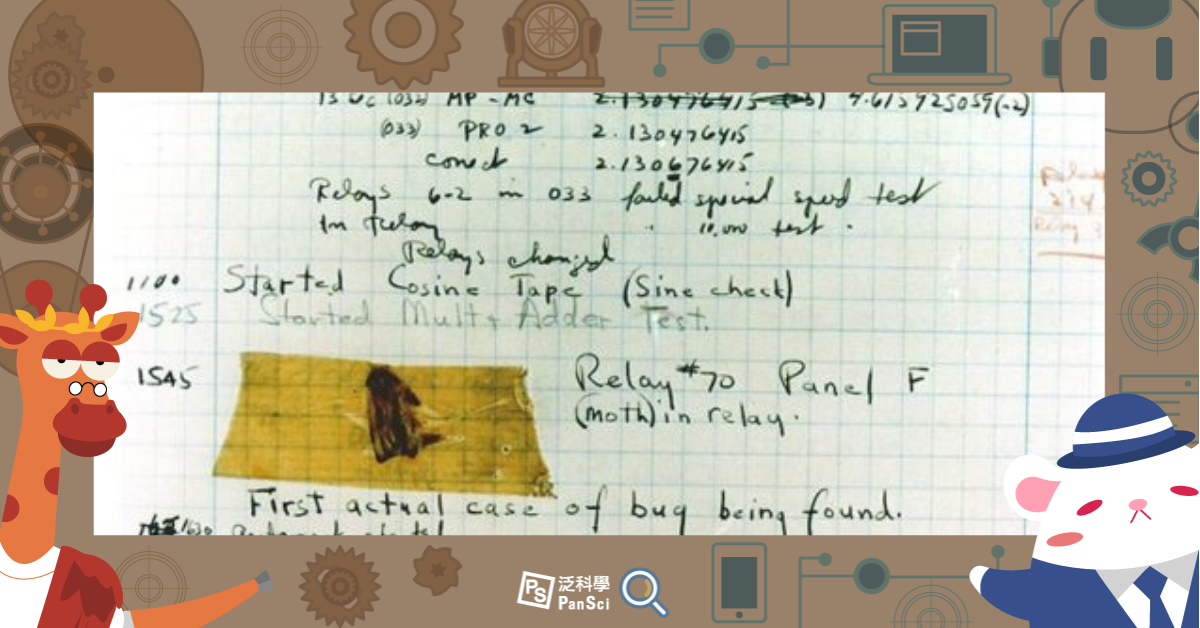 13 UC (032) MP - MC 2.130476415 (-3) 4.615925059(-2)
(033) PRO 2 2.130476415
conect 2.130676415
Relays 6-2 in 033 failed special speed test
In Relay " 10,000 test .
Relays changed
1100 Started Cosine Tape (Sine check)
1525 Started Mult + Adder Test.
1545 Relay #70 Panel F
(moth) in relay.
First actual case of bug being found.
1630
PS 泛科學
PanSci